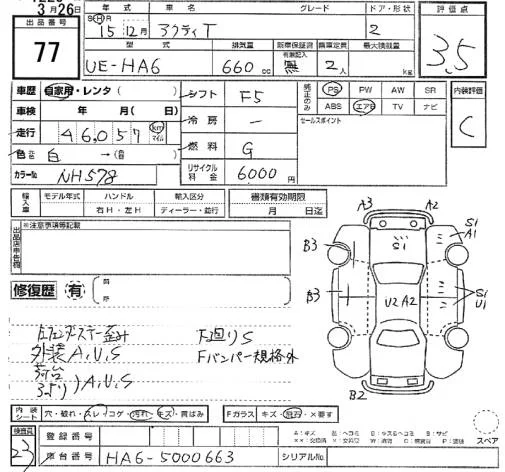 3月26日
出品番号
77
年式 車名 グレード ドア・形状
SHR 15年12月 アクティT 2
評価点
3.5
型式 排気量 新車保証書 乗車定員 最大積載量
有無記入
UE-HA6 660cc 無 2人 kg
車歴 自家用・レンタ( )
シフト F5
純正のみ
PS PW AW SR
ABS エアB TV ナビ
内装評価
C
車検 年 月( 日)
冷房 ー
セールスポイント
走行 46,057 km マイル
燃料 G
色 白 →( 色)
カラーNo NH578
リサイクル料金 6000円
輸入車
モデル年式 ハンドル 輸入区分 書類有効期限
年 右H・左H ディーラー・並行 月 日迄
※注意事項等記載
出品店申告欄
修復歴 有
A3 A2
S1
S1
A1
B3
B3
U2 A2
S1
U1
B2
左フェンダーステー歪み F廻りS
外装A,U,S Fバンパー規格外
荷台
A,U,S
内装シート 穴・破れ・スレ・コゲ・汚れ・キズ・黄ばみ
Fガラス キズ・飛石・×要す
A:キズ
スペア
検査員
23
登録番号
車台番号 HA6-5000663 シリアルNo.